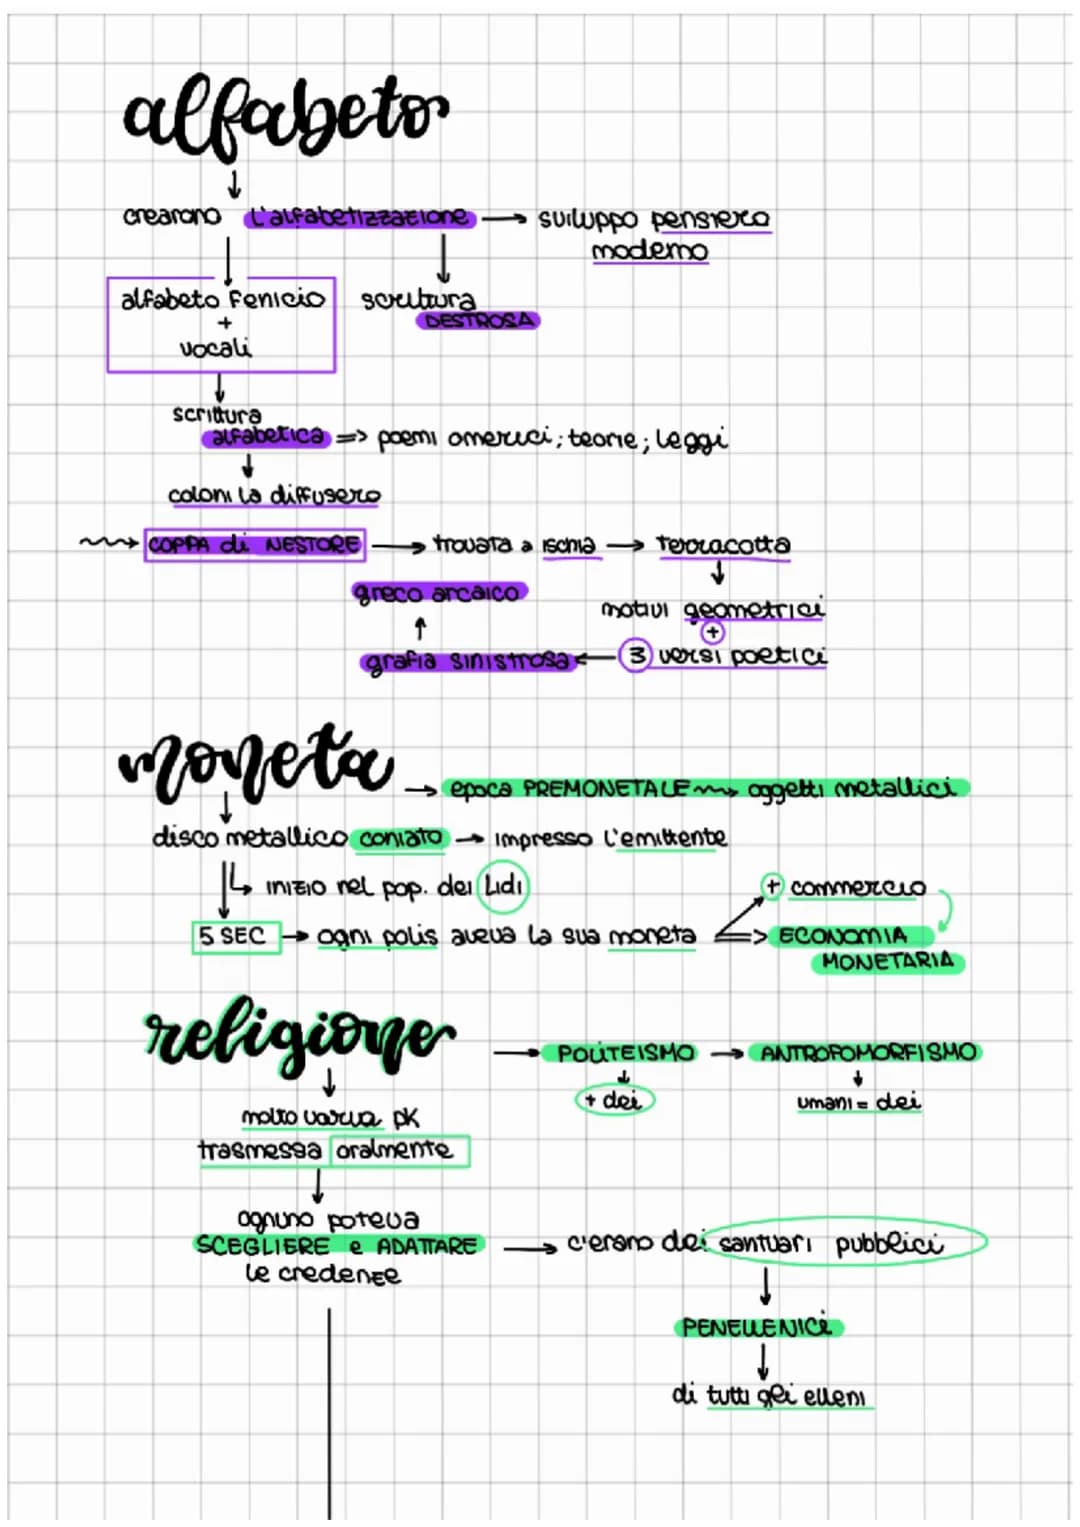 alfabeto
crearono l'alfabetizzazione → sviluppo pensiero
moderno
alfabeto Fenicio
+
vocali
scrittura
DESTROSA
scrittura
alfabetica => poemi omerici; teorie; leggi
coloni la diffusero
COPPA di NESTORE → trovata a ischia → terracotta
greco arcaico
motivi geometrici
+
grafia sinistrosa ← 3 versi poetici
moneta
→ epoca PREMONETALE ~> oggetti metallici
disco metallico coniato → impresso l'emittente
↳ inizio nel pop. dei Lidi
+ commercio
5 SEC → ogni polis aveva la sua moneta => ECONOMIA
MONETARIA
religione
→ POLITEISMO → ANTROFOMORFISMO
+ dei
umani = dei
molto varia pk
trasmessa oralmente
ognuno poteva
SCEGLIERE e ADATTARE
le credenze
→ c'erano dei santuari pubblici
PENELLENICI
di tutti gli elleni